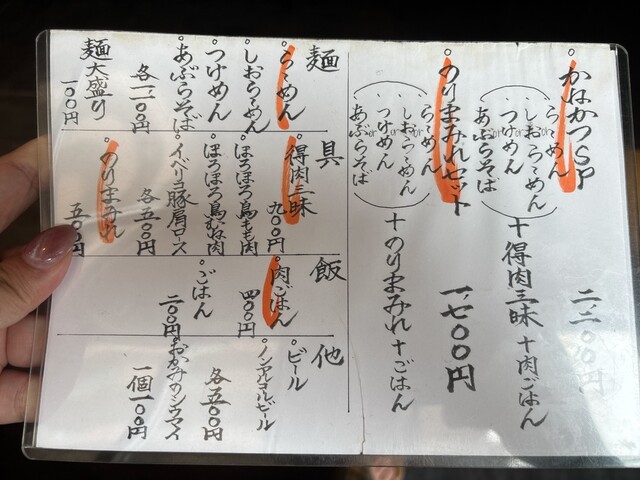 かねかつSP
らーめん
or
しおらーめん
or
つけめん
or
あぶらそば
＋得肉三昧＋肉ごはん
二二〇〇円
のりまみれセット
らーめん
or
しおらーめん
or
つけめん
or
あぶらそば
＋のりまみれ＋ごはん
一七〇〇円
麺
らーめん
しおらーめん
つけめん
あぶらそば
各一二〇〇円
麺大盛り
一〇〇円
具
得肉三昧
九〇〇円
ほろほろ鳥もも肉
ほろほろ鳥むね肉
イベリコ豚肩ロース
各五〇〇円
のりまみれ
五〇〇円
飯
肉ごはん
四〇〇円
ごはん
二〇〇円
他
ビール
ノンアルコールビール
各五〇〇円
おかみのシウマイ
一個一〇〇円